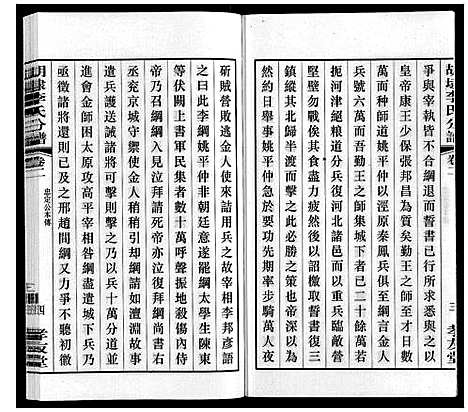 爭與宰執皆不合綱退而誓書已行所求悉與之以
皇帝康王少保張邦昌為質矣時勤王之師至者日
萬而种師道姚平仲以涇原秦鳳兵俱至綱言金人
兵號六萬而吾勤王之師集城下者已二十餘萬若
扼河津絕糧道分兵復河北諸邑而以重兵臨敵營
堅壁勿戰俟其食盡力疲然後以詔檄取誓書復三
鎮縱其北歸半渡而擊之此必勝之計也上深以為
然約日舉事姚平仲急於要功先期率步騎萬人夜
斫賊營敗逃去金人使來詰用兵之故宰相李邦彥語
之曰此李綱姚平仲非朝廷意遂罷綱太學生陳東
等伏闕上書軍民集者數十萬呼聲振地殺傷內侍
帝乃召綱綱入見泣拜請死帝亦泣復拜綱尚書右
丞充京城守禦使金人稍稍引却綱請如澶淵故事
遣兵護送誡諸將可擊則擊之乃以兵十萬分道
進兵會金師困太原攻高平宰相咎綱盡遣城下兵
亟徵諸將還則已及之邢趙間綱又力爭不聽初徵
胡𡒄李氏分譜
卷二
忠定公本傳
四
胡𡒄李氏分譜
卷二
三
孝友堂